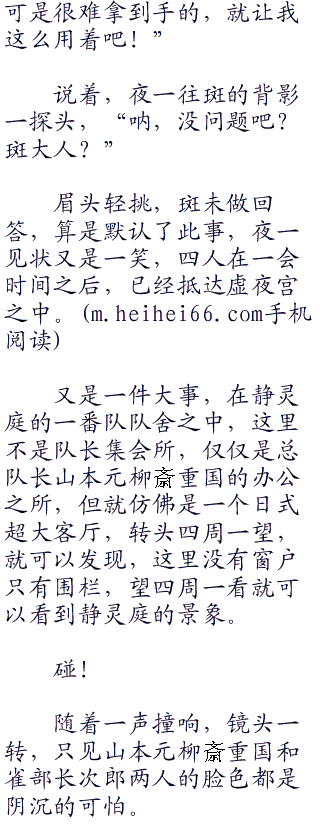 可是很难拿到手的，就让我
这么用着吧！”
说着，夜一往斑的背影
一探头，“呐，没问题吧？
斑大人？”
眉头轻挑，斑未做回
答，算是默认了此事，夜一
见状又是一笑，四人在一会
时间之后，已经抵达虚夜宫
之中。(m.heihei66.com手机
阅读)
又是一件大事，在静灵
庭的一番队队舍之中，这里
不是队长集会所，仅仅是总
队长山本元柳斎重国的办公
之所，但就仿佛是一个日式
超大客厅，转头四周一望，
就可以发现，这里没有窗户
只有围栏，望四周一看就可
以看到静灵庭的景象。
碰！
随着一声撞响，镜头一
转，只见山本元柳斎重国和
雀部长次郎两人的脸色都是
阴沉的可怕。